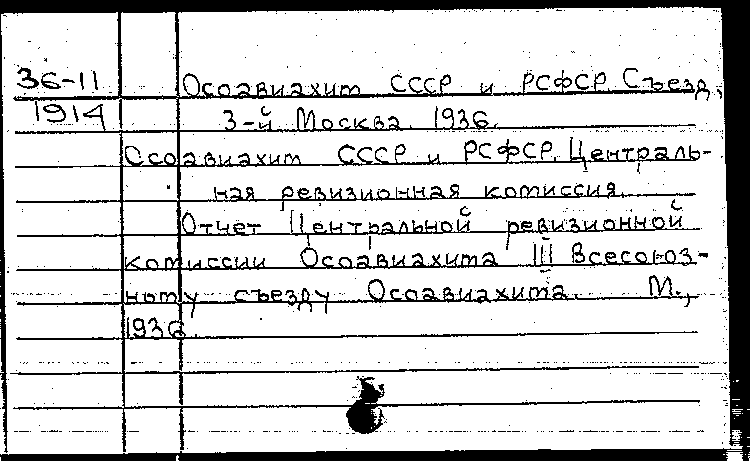 36-11 Осоавиахим СССР и РСФСР. Съезд,
1914 3-й Москва. 1936.
Осоавиахим СССР и РСФСР. Централь-
ная ревизионная комиссия.
Отчет Центральной ревизионной
комиссии Осоавиахима III Всесоюз-
ному съезду Осоавиахима. М.,
1936.